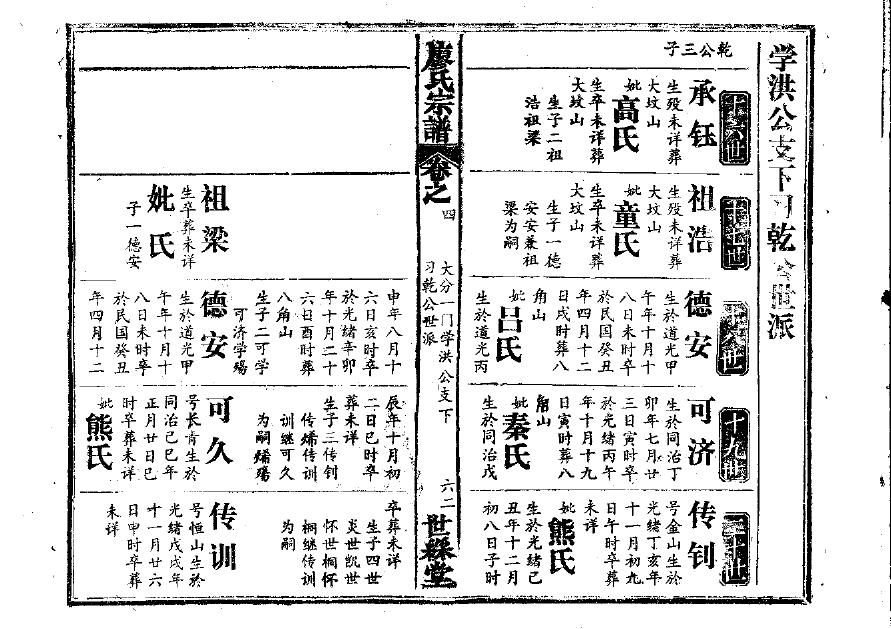 学洪公支下习乾公世派
乾公三子
十六世
承钰
生殁未详葬
大坟山
妣高氏
生卒未详葬
大坟山
生子二祖
浩祖梁
十七世
祖浩
生殁未详葬
大坟山
妣童氏
生卒未详葬
大坟山
生子一德
安安兼祖
梁为嗣
十八世
德安
生於道光甲
午年十月十
八日未时卒
於民国癸丑
年四月十二
日戌时葬八
角山
妣吕氏
生於道光丙
十九世
可济
生於同治丁
卯年七月廿
三日寅时卒
於光绪丙午
年十月十九
日寅时葬八
角山
妣秦氏
生於同治戊
二十世
传钊
号金山生於
光绪丁亥年
十一月初九
日午时卒葬
未详
妣熊氏
生於光绪己
丑年十二月
初八日子时
廖氏宗谱
卷之四
大分一门学洪公支下
习乾公世派
六二
世綵堂
祖梁
生卒葬未详
妣氏
子一德安
申年八月十
六日亥时卒
於光绪辛卯
年十月二十
六日酉时葬
八角山
生子二可学
可济学殇
德安
生於道光甲
午年十月十
八日未时卒
於民国癸丑
年四月十二
辰年十月初
二日巳时卒
葬未详
生子三传钊
传烯传训
训继可久
为嗣烯殇
可久
号长青生於
同治己巳年
正月廿日巳
时卒葬未详
妣熊氏
卒葬未详
生子四世
炎世凯世
怀世桐怀
桐继传训
为嗣
传训
号恒山生於
光绪戊戌年
十一月廿六
日申时卒葬
未详